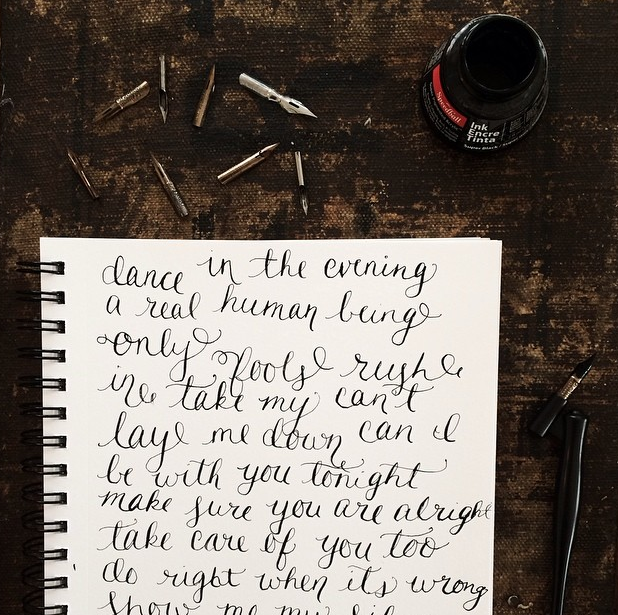 Speedball
Ink
Encre
Tinta
Super Black
dance in the evening
a real human being
only fools rush
in take my can't
lay me down can I
be with you tonight
make sure you are alright
take care of you too
do right when its wrong
show me my